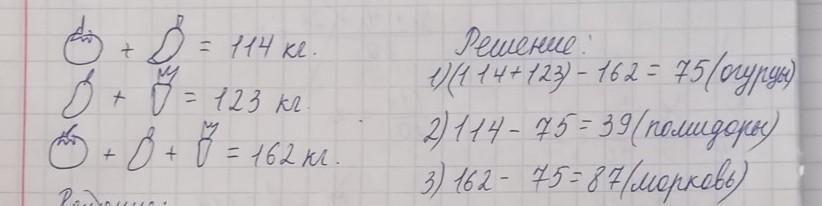 + = 114 кг.
+ = 123 кг.
+ + = 162 кг.
Решение:
1)(114+123) - 162 = 75 (огурцы)
2) 114 - 75 = 39 (помидоры)
3) 162 - 75 = 87 (морковь)